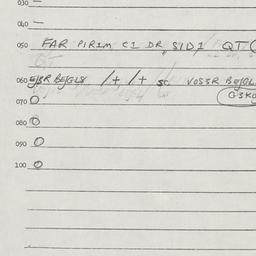 030 —
040 —
050 FAR PIRIM C1 DR, SIDI QT
060 BEJGLS /+/+ SC VOSSR BEJGL
G3KG
070 0
080 0
090 0
100 0